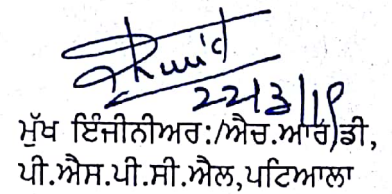 22/3/19
ਮੁੱਖ ਇੰਜੀਨੀਅਰ:/ਐਚ.ਆਰ.ਡੀ,
ਪੀ.ਐਸ.ਪੀ.ਸੀ.ਐਲ,ਪਟਿਆਲਾ